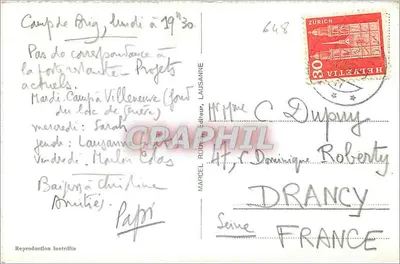 Camp de Brig, lundi à 19h30
Pas de correspondance à
la poste restante - Projets
actuels.
Mardi: Camp à Villeneuve (fond
du lac de
mercredi: Sarah
jeudi: Lausanne
Vendredi:
Baisers à Christine
Amitiés.
Papi
Reproduction interdite
MARCEL Editeur, LAUSANNE
648
ZÜRICH
30
HELVETIA
Mr Mme C Dupuy
47, r Dominique Roberty
DRANCY
Seine
FRANCE
CPAPHIL